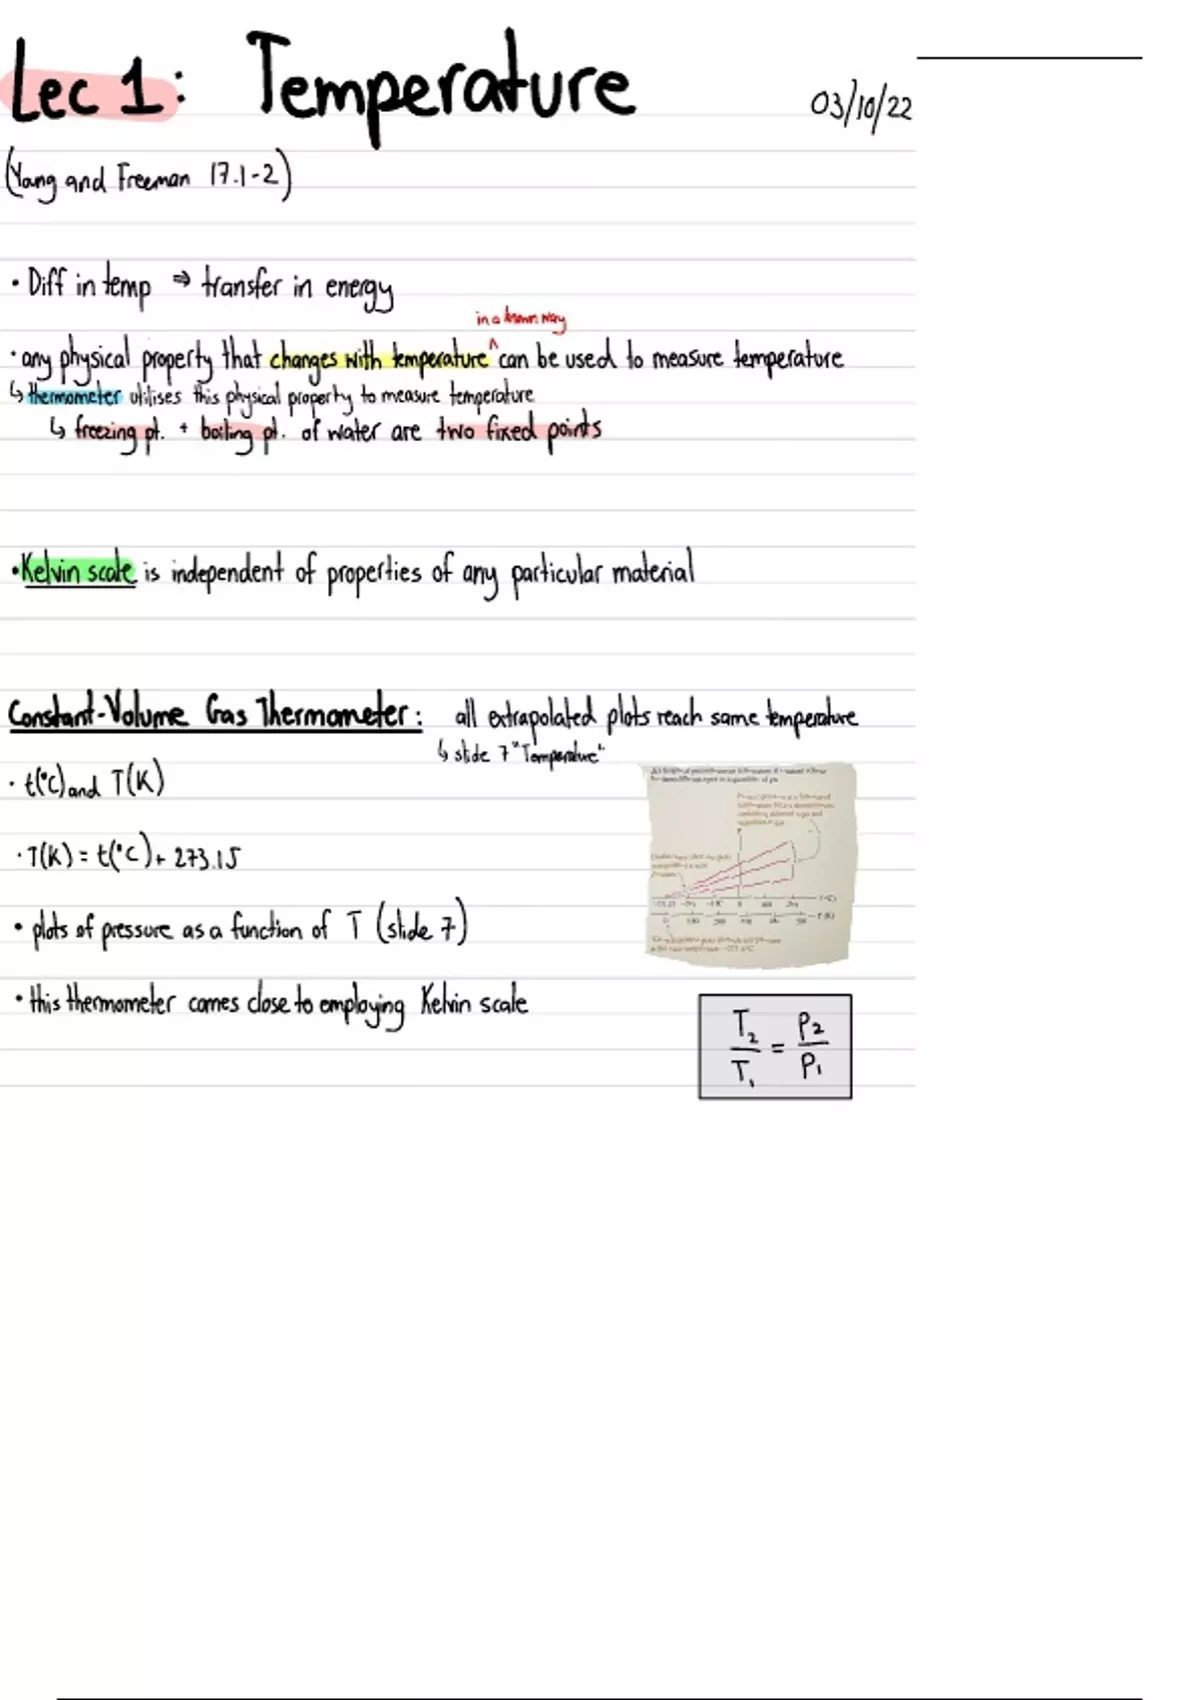 Lec 1: Temperature
03/10/22
(Young and Freeman 17.1-2)
• Diff in temp ⇒ transfer in energy
in a known way
• any physical property that changes with temperature ^ can be used to measure temperature
↳ thermometer utilises this physical property to measure temperature
↳ freezing pt. + boiling pt. of water are two fixed points
• Kelvin scale is independent of properties of any particular material
Constant-Volume Gas Thermometer: all extrapolated plots reach same temperature
↳ slide 7 "Temperature"
• t(°C) and T(K)
• T(K) = t(°C) + 273.15
• plots of pressure as a function of T (slide 7)
• this thermometer comes close to employing Kelvin scale
T₂/T₁ = P₂/P₁